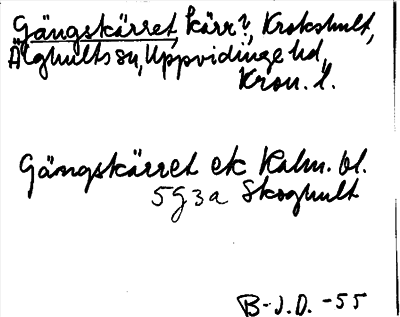 Gängskärret, kärr i, Krokshult,
Älghults sn, Uppvidinge hd,
Kron. l.
Gängskärret ek Kalm. bl.
5G3a Skoghult
B-J.O. -55